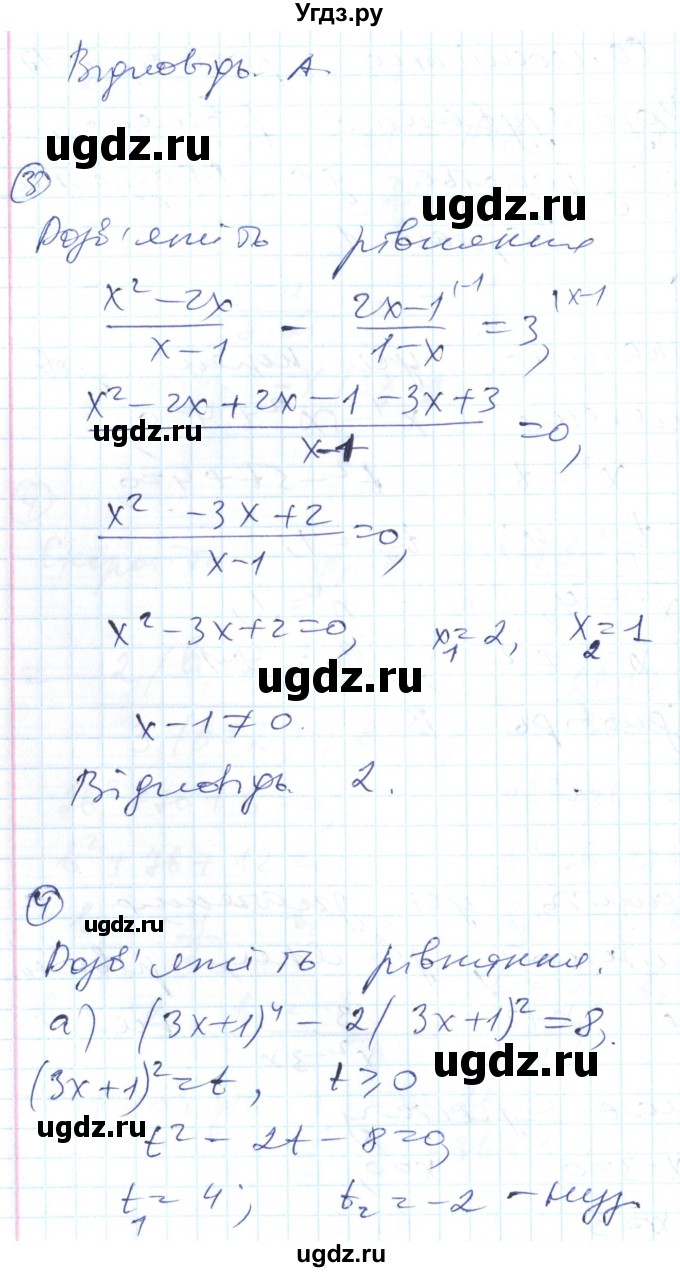 Угдз.ру
Відповідь. А
ugdz.ru
③
ugdz.ru
Розв'яжіть рівняння
(x² - 2x)/(x - 1) - (2x - 1)/(1 - x) = 3, |·(-1) |x-1
(x² - 2x + 2x - 1 - 3x + 3)/(x - 1) = 0,
ugdz.ru
(x² - 3x + 2)/(x - 1) = 0,
x² - 3x + 2 = 0, x₁ = 2, x₂ = 1
ugdz.ru
x - 1 ≠ 0.
Відповідь 2.
④
ugdz.ru
Розв'яжіть рівняння:
а) (3x+1)⁴ - 2(3x+1)² = 8,
ugdz.ru
(3x+1)² = t, t ⩾ 0
ugdz.ru
t² - 2t - 8 = 0,
t₁ = 4; t₂ = -2 -
ugdz.ru